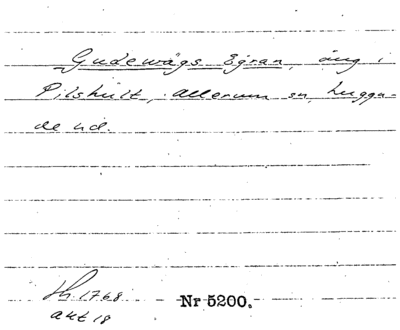 Gudewågs Egran, äng i
Pilshult, Allerum sn, Luggu-
de hd.
Lh 1768
akt 18
Nr 5200.